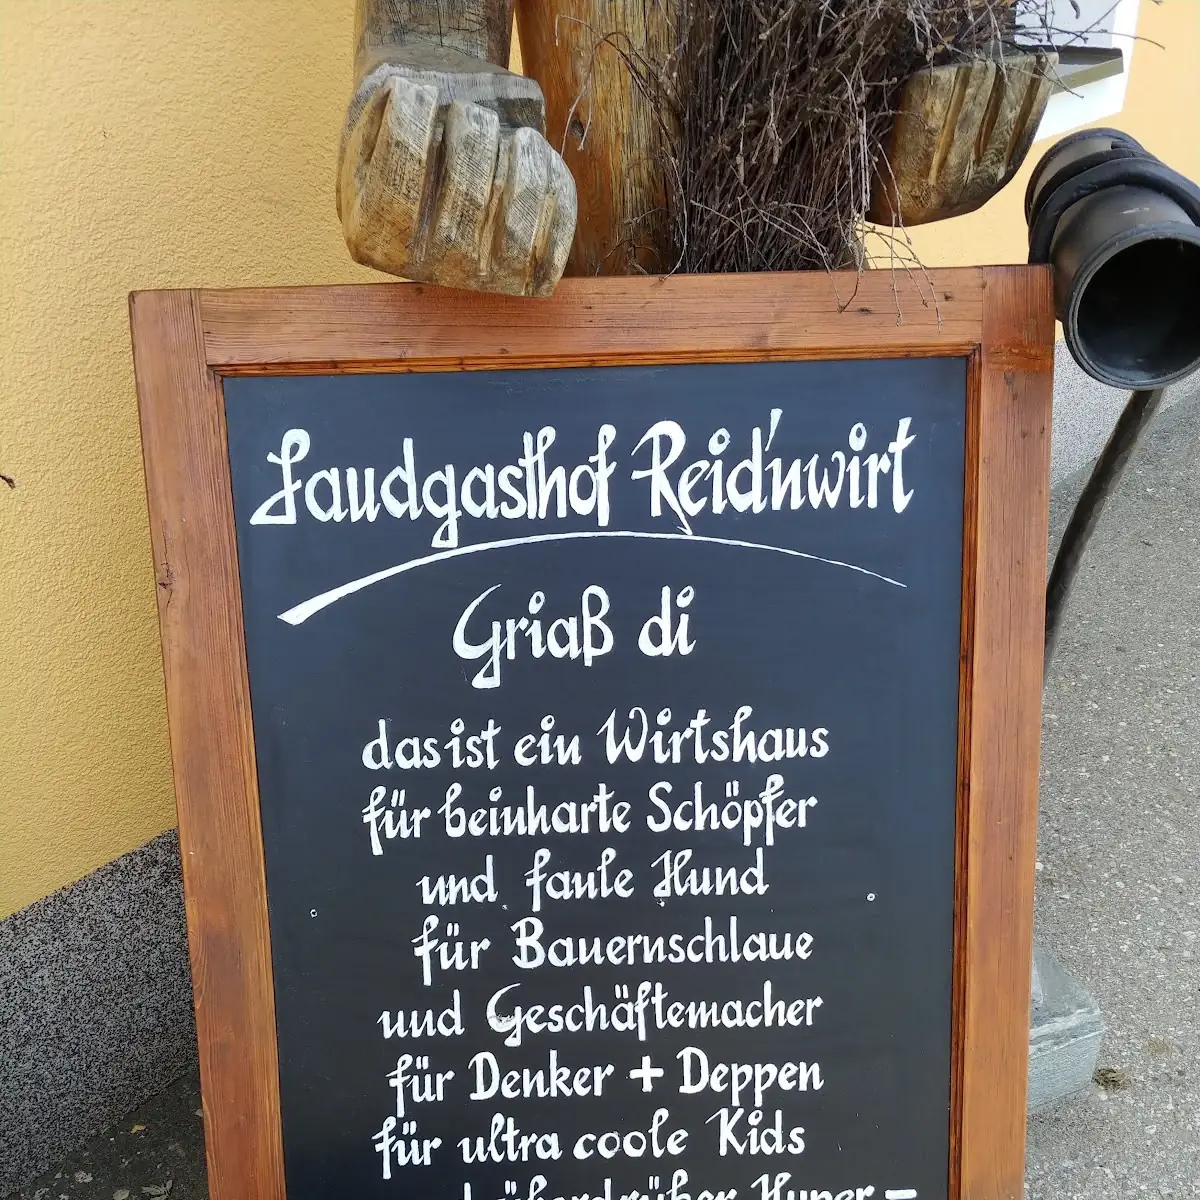 Landgasthof Reid'nwirt
Griaß di
das ist ein Wirtshaus
für beinharte Schöpfer
und faule Hund
für Bauernschlaue
und Geschäftemacher
für Denker + Deppen
für ultra coole Kids
überdrüber Hyper -